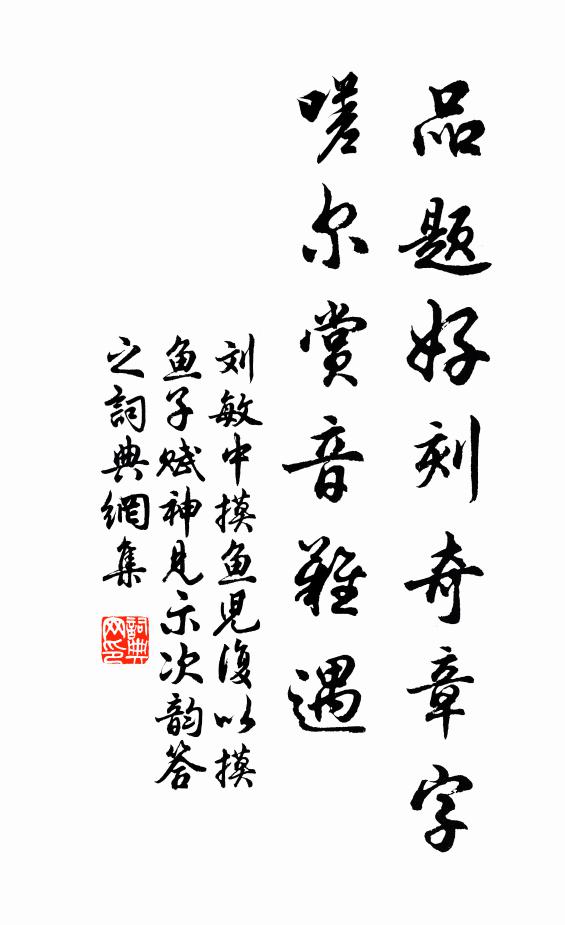 品题好刻奇章字
嗟尔赏音难遇
刘敏中摸鱼儿復以摸
鱼子赋神见示次韵答
之詞典網集
詞典
网印